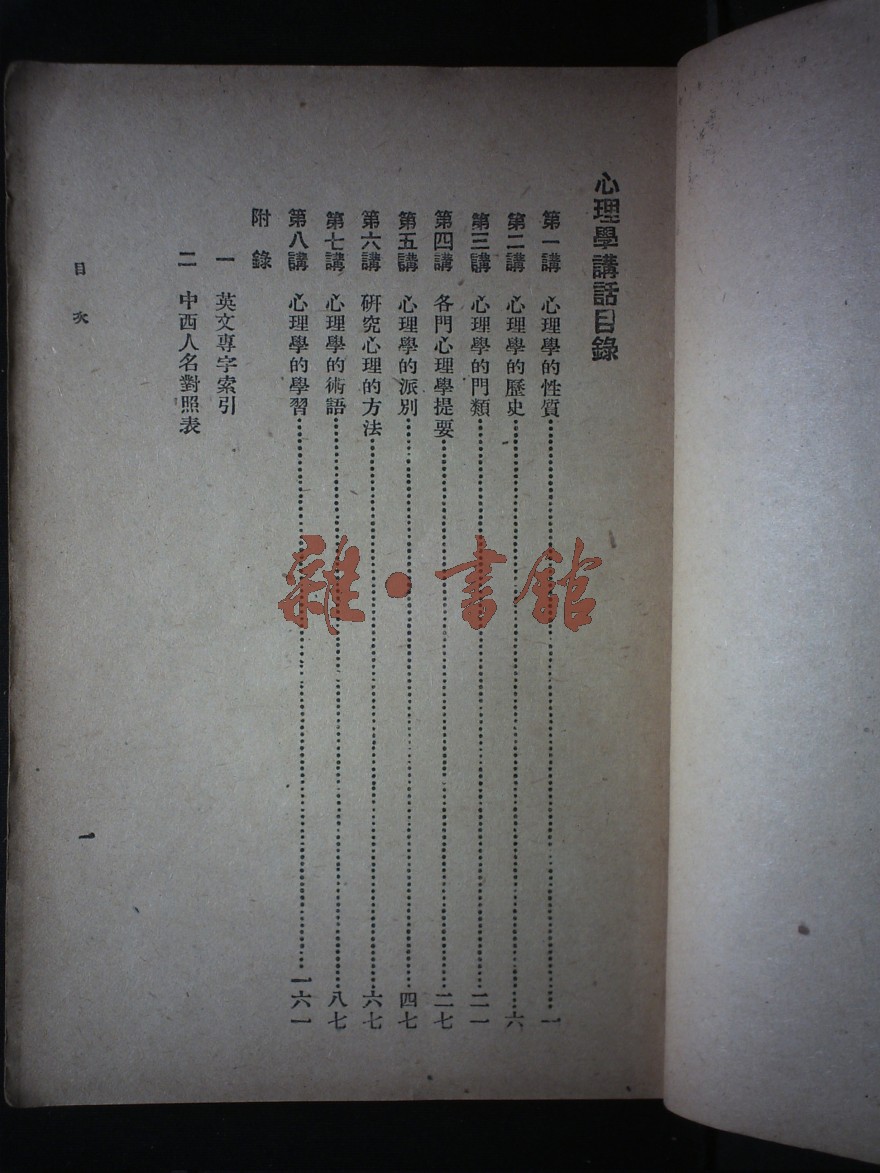 心理學講話目錄
第一講 心理學的性質……一
第二講 心理學的歷史……六
第三講 心理學的門類……二一
第四講 各門心理學提要……二七
第五講 心理學的派別……四七
第六講 研究心理的方法……六七
第七講 心理學的術語……八七
第八講 心理學的學習……一六一
附錄
一 英文專字索引
二 中西人名對照表
目次
一
雜·書館